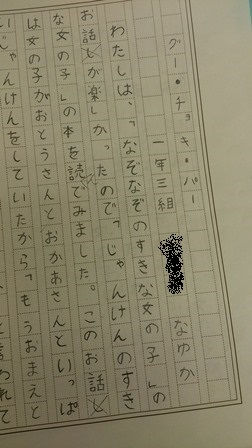 グー・チョキ・パー
一年三組 なゆか
わたしは、「なぞなぞのすきな女の子」の
お話しが楽しかったので「じゃんけんのすき
な女の子」の本を読でみました。このお話し
は女の子がおとうさんとおかあさんといっぱ
いじゃんけんをしていたから「もうおまえと
と言われて